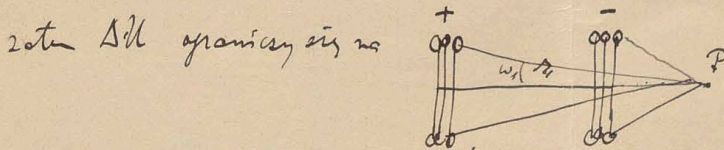 zatem ΔU ograniczy się na
+ −
ω₁ P